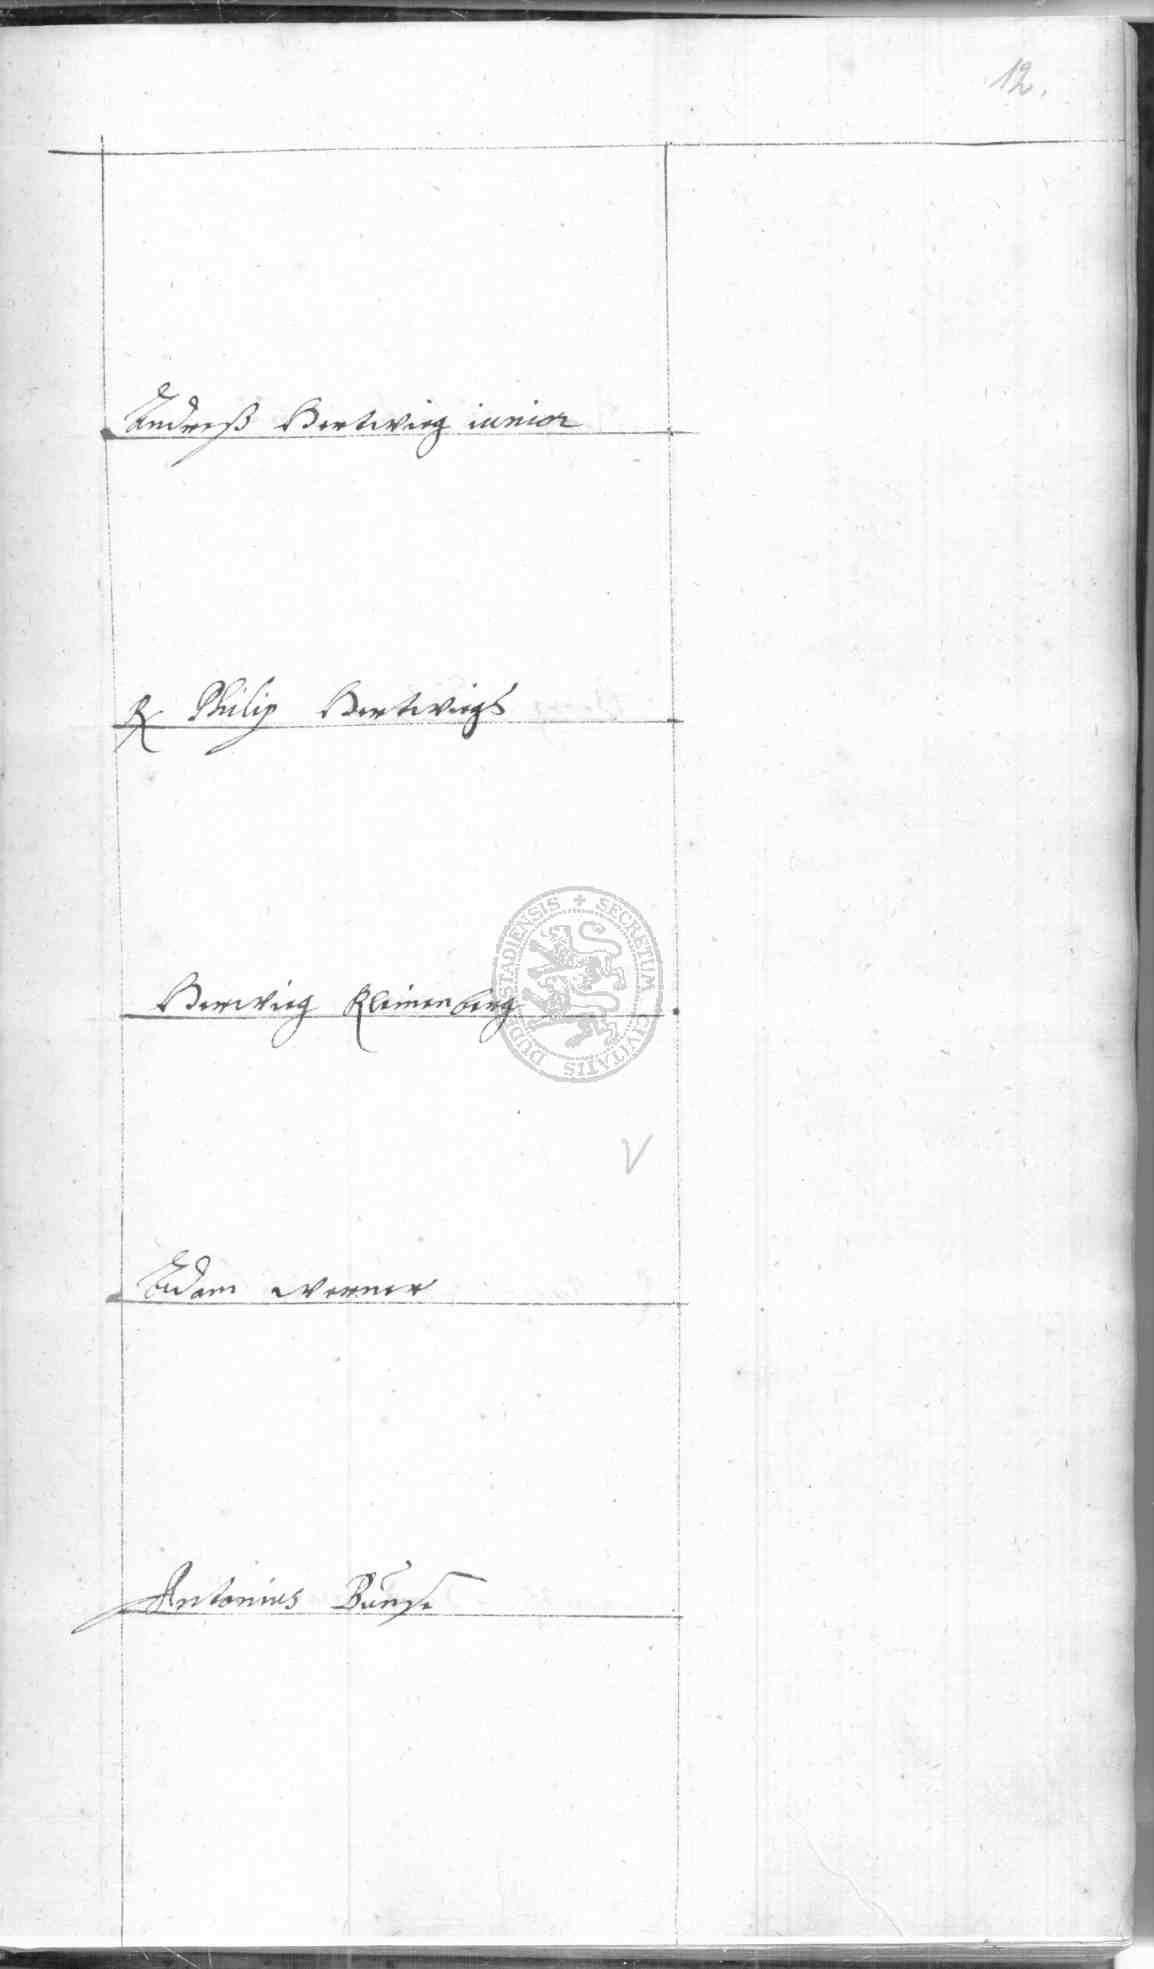 12.
Andreß Hertwig iunior
R Philip Hertwigs
Herwig Kleinenberg
SECRETUM CIVITATIS DUDERSTADIENSIS
V
Adam Werner
Antonius Bunse